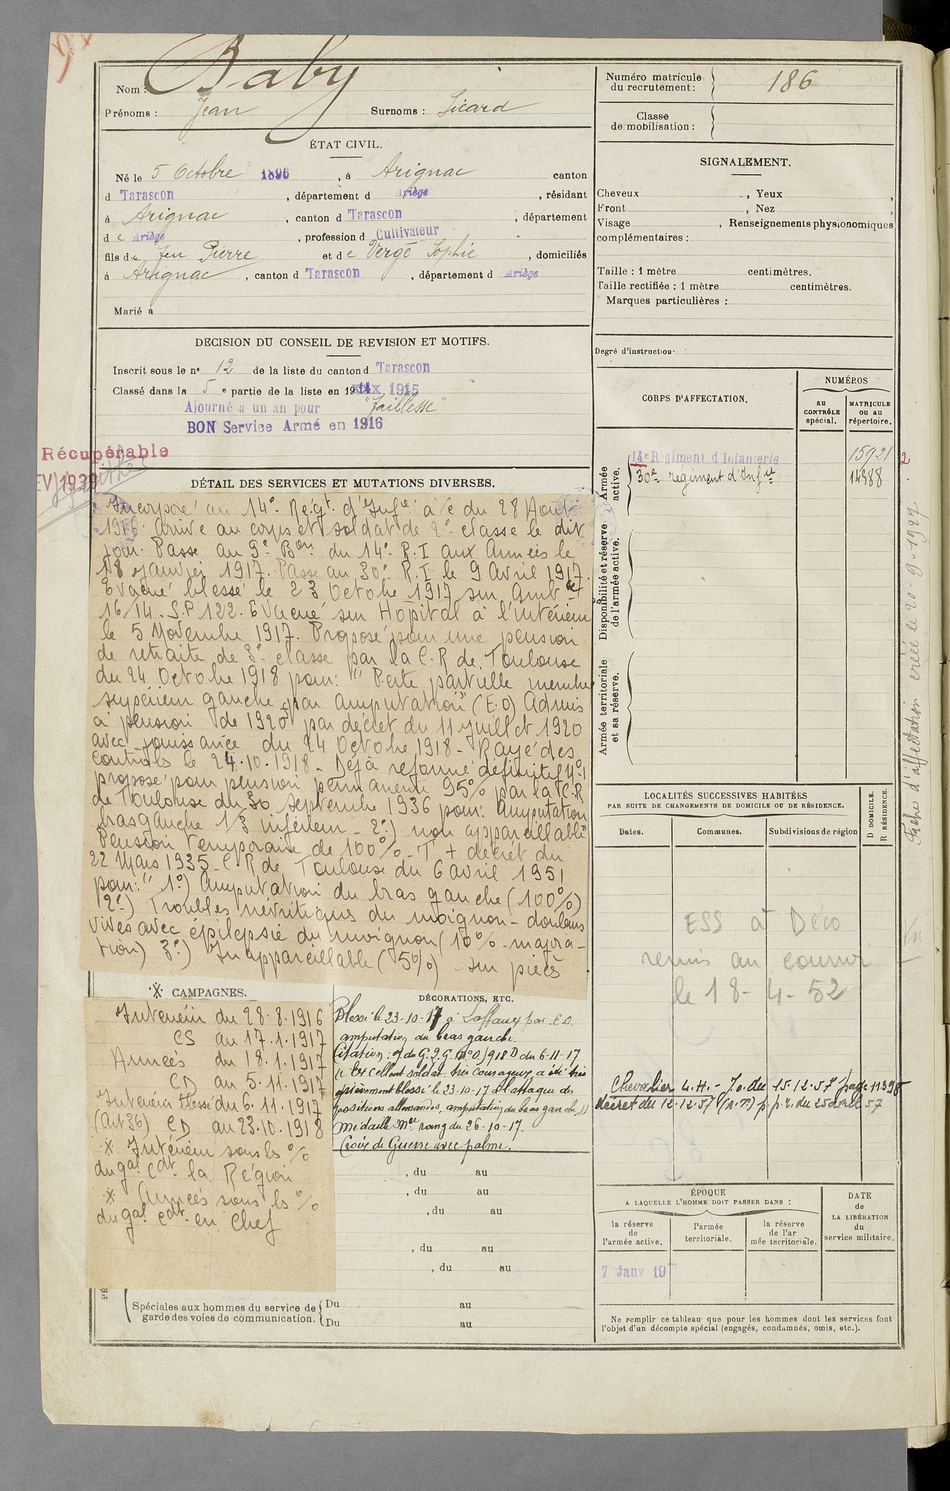 Nom : Baby
Prénoms : Jean Surnoms : Sicard
ÉTAT CIVIL.
Né le 5 Octobre 1896, à Arignac canton
d Tarascon, département d Ariège, résidant
à Arignac, canton d Tarascon, département
d e Ariège, profession d Cultivateur
fils de feu Pierre et de Vergé Sophie, domiciliés
à Arignac, canton d Tarascon, département d Ariège
Marié à
DECISION DU CONSEIL DE REVISION ET MOTIFS.
Inscrit sous le n° 12 de la liste du canton d Tarascon
Classé dans la 5 e partie de la liste en 1915
Ajourné a un an pour "faiblesse"
BON Service Armé en 1916
Récupérable
DÉTAIL DES SERVICES ET MUTATIONS DIVERSES.
Incorporé au 14e Régt d'Infie à/c du 28 Août
1916 Arrivé au corps et soldat de 2e classe le dit
jour. Passé au 9e Bon du 14e R.I aux Armées le
18 janvier 1917. Passé au 30e R.I le 9 Avril 1917.
Evacué blessé le 23 Octobre 1917 sur Amb ce
16/14 S.P 122. Evacué sur Hopital à l'intérieur
le 5 Novembre 1917. Proposé pour une pension
de retraite de 3e classe par la C.R de Toulouse
du 24 Octobre 1918 pour: " Perte partielle membre
supérieur gauche par amputation" (E.O) Admis
à pension de 1920 par décret du 11 juillet 1920
avec jouissance du 24 Octobre 1918 - Rayé des
contrôles le 24.10.1918 - Déjà réformé définitif n°1
proposé pour pension permanente 95% par la C.R
de Toulouse du 30 septembre 1936 pour: Amputation
bras gauche 1/3 inférieur - 2°) non appareillable
Pension temporaire de 100% - T + décret du
22 Mars 1935 - C.R de Toulouse du 6 avril 1951
pour: " 1°) Amputation du bras gauche (100%)
2°) Troubles névritiques du moignon - douleurs
vives avec épilepsie du moignon (10% majora-
tion) 3°) Inappareillable (5%) sur pièces
CAMPAGNES.
Intérieur du 28.8.1916
CS au 17.1.1917
Armées du 18.1.1917
CD au 5.11.1917
Intérieur blessé du 6.11.1917
(Art 36) CD au 23.10.1918
* Intérieur sous le %
du gal cdt la Région
* Armées sous le %
du gal cdt en Chef
DÉCORATIONS, ETC.
Blessé le 23-10-17 à Laffaux par E.O.
amputation du bras gauche.
Citation : O du G.Q.G. N° D du 6-11-17
excellent soldat très courageux, a été très
grièvement blessé le 23-10-17 à l'attaque des
positions allemandes, amputation du bras gauche
Médaille Mre rang du 26-10-17.
Croix de Guerre avec palme.
, du au
, du au
, du au
, du au
, du au
Spéciales aux hommes du service de
garde des voies de communication.
Du au
Du au
Numéro matricule
du recrutement : 186
Classe
de mobilisation :
SIGNALEMENT.
Cheveux , Yeux ,
Front , Nez ,
Visage , Renseignements physionomiques
complémentaires :
Taille : 1 mètre centimètres.
Taille rectifiée : 1 mètre centimètres.
Marques particulières :
Degré d'instruction
CORPS D'AFFECTATION.
NUMÉROS
au
CONTRÔLE
spécial.
MATRICULE
OU au
répertoire.
Armée
active.
14e Régiment d'Infanterie 15921
30e régiment d'Infie 14388
Disponibilité et réserve
de l'armée active.
Armée territoriale
et sa réserve.
LOCALITÉS SUCCESSIVES HABITÉES
PAR SUITE DE CHANGEMENTS DE DOMICILE OU DE RÉSIDENCE.
Dates. Communes. Subdivisions de région
D DOMICILE.
R RÉSIDENCE.
ESS à Déco
remis au courrier
le 18-4-52
Chevalier L.H. - J.o. du 15.12.57 page 11398
décret du 12.12.57
ÉPOQUE
A LAQUELLE L'HOMME DOIT PASSER DANS :
la réserve
de
l'armée active.
l'armée
territoriale.
la réserve
de l'ar
mée territoriale.
DATE
de
LA LIBÉRATION
du
service militaire.
7 Janv 19
Ne remplir ce tableau que pour les hommes dont les services font
l'objet d'un décompte spécial (engagés, condamnés, omis, etc.).
Fiche d'affectation créée le 20-9-1927